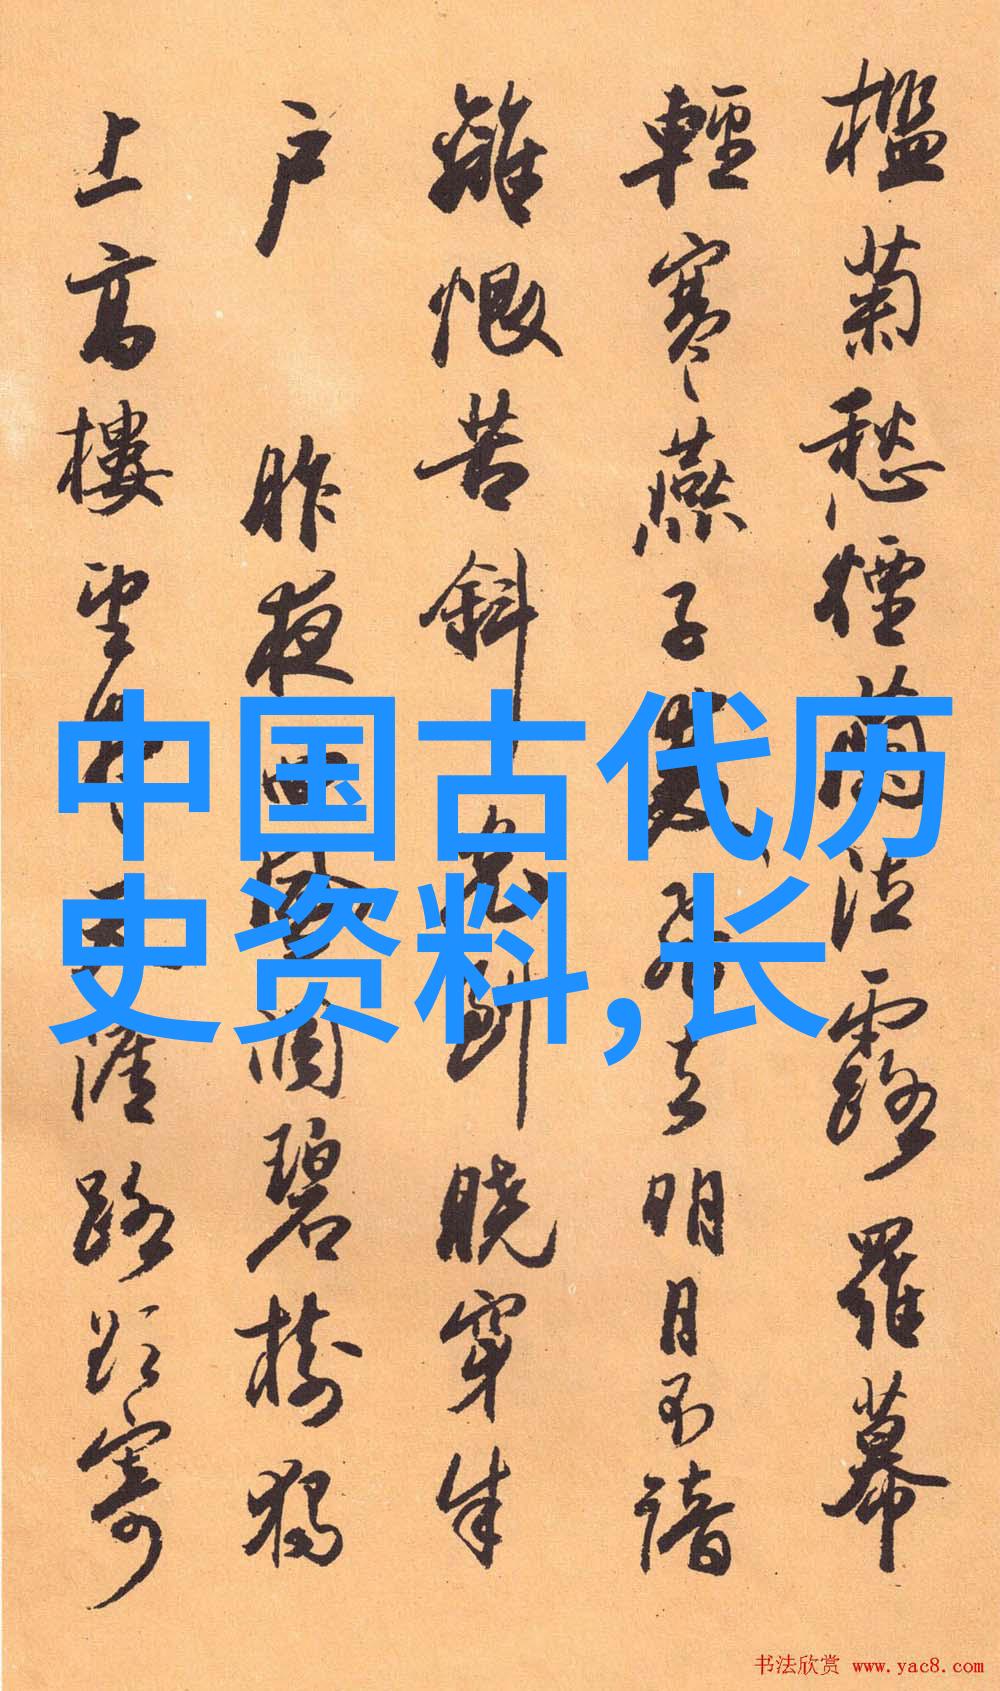 檻菊愁煙蘭泣露羅幕
輕寒燕子雙飛去明月不諳
離恨苦斜光到曉穿朱
户昨夜西風凋碧樹獨
上高樓望盡天涯路欲寄
中国古代历
史资料,长
书法欣赏 www.yac8.com